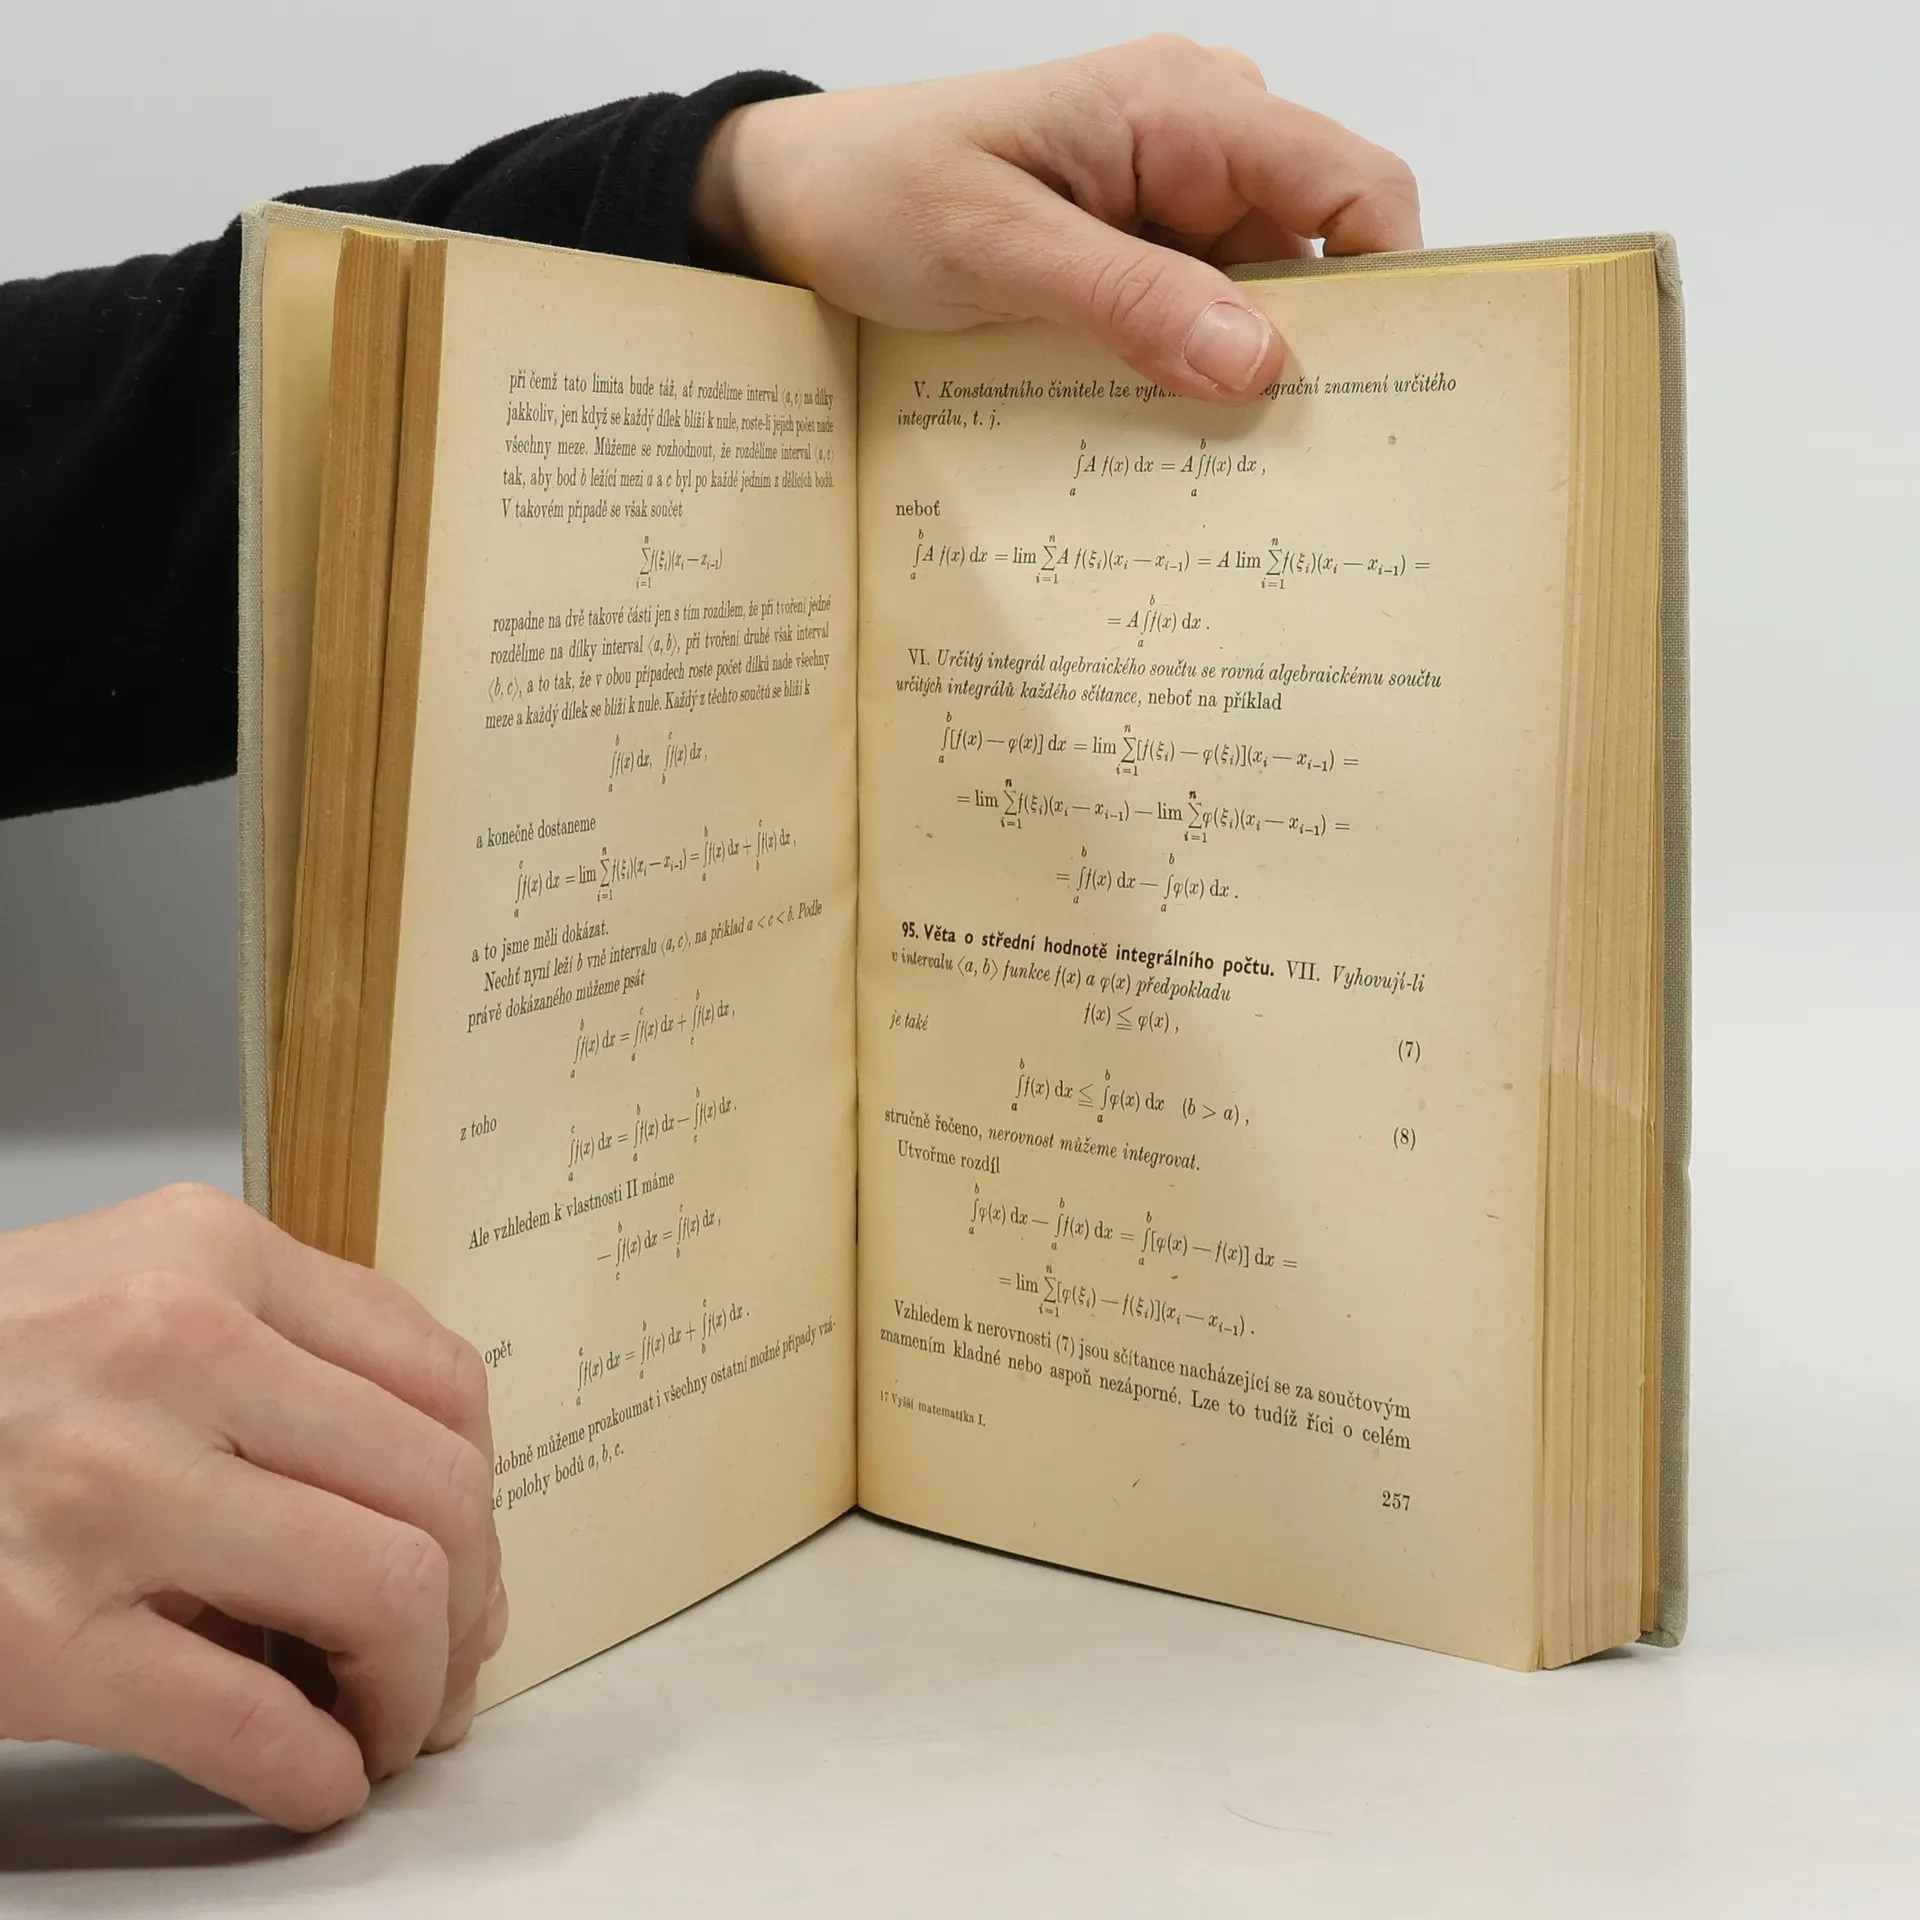 při čemž tato limita bude táž, ať rozdělíme interval ⟨a, c⟩ na dílky
jakkoliv, jen když se každý dílek blíží k nule, roste-li jejich počet nade
všechny meze. Můžeme se rozhodnout, že rozdělíme interval ⟨a, c⟩
tak, aby bod b ležící mezi a a c byl po každé jedním z dělicích bodů.
V takovém případě se však součet
n
∑f(ξᵢ)(xᵢ — xᵢ₋₁)
i=1
rozpadne na dvě takové části jen s tím rozdílem, že při tvoření jedné
rozdělíme na dílky interval ⟨a, b⟩, při tvoření druhé však interval
⟨b, c⟩, a to tak, že v obou případech roste počet dílků nade všechny
meze a každý dílek se blíží k nule. Každý z těchto součtů se blíží k
b c
∫f(x) dx, ∫f(x) dx ,
a b
a konečně dostaneme
c n b c
∫f(x) dx = lim ∑f(ξᵢ)(xᵢ — xᵢ₋₁) = ∫f(x) dx + ∫f(x) dx ,
a i=1 a b
a to jsme měli dokázat.
Nechť nyní leží b vně intervalu ⟨a, c⟩, na příklad a < c < b. Podle
právě dokázaného můžeme psát
b c b
∫f(x) dx = ∫f(x) dx + ∫f(x) dx ,
a a c
z toho
c b b
∫f(x) dx = ∫f(x) dx — ∫f(x) dx .
a a c
Ale vzhledem k vlastnosti II máme
b c
— ∫f(x) dx = ∫f(x) dx ,
c b
opět
c b c
∫f(x) dx = ∫f(x) dx + ∫f(x) dx .
a a b
dobně můžeme prozkoumat i všechny ostatní možné případy vzá-
né polohy bodů a, b, c.
V. Konstantního činitele lze integrační znamení určitého
integrálu, t. j.
b b
∫A f(x) dx = A∫f(x) dx ,
a a
neboť
b n n
∫A f(x) dx = lim ∑A f(ξᵢ)(xᵢ — xᵢ₋₁) = A lim ∑f(ξᵢ)(xᵢ — xᵢ₋₁) =
a i=1 i=1
b
= A∫f(x) dx .
a
VI. Určitý integrál algebraického součtu se rovná algebraickému součtu
určitých integrálů každého sčítance, neboť na příklad
b n
∫[f(x) — φ(x)] dx = lim ∑[f(ξᵢ) — φ(ξᵢ)](xᵢ — xᵢ₋₁) =
a i=1
n n
= lim ∑f(ξᵢ)(xᵢ — xᵢ₋₁) — lim ∑φ(ξᵢ)(xᵢ — xᵢ₋₁) =
i=1 i=1
b b
= ∫f(x) dx — ∫φ(x) dx .
a a
95. Věta o střední hodnotě integrálního počtu. VII. Vyhovují-li
v intervalu ⟨a, b⟩ funkce f(x) a φ(x) předpokladu
f(x) ≦ φ(x) , (7)
je také
b b
∫f(x) dx ≦ ∫φ(x) dx (b > a) , (8)
a a
stručně řečeno, nerovnost můžeme integrovat.
Utvořme rozdíl
b b b
∫φ(x) dx — ∫f(x) dx = ∫[φ(x) — f(x)] dx =
a a a
n
= lim ∑[φ(ξᵢ) — f(ξᵢ)](xᵢ — xᵢ₋₁) .
i=1
Vzhledem k nerovnosti (7) jsou sčítance nacházející se za součtovým
znamením kladné nebo aspoň nezáporné. Lze to tudíž říci o celém
17 Vyšší matematika I.
257